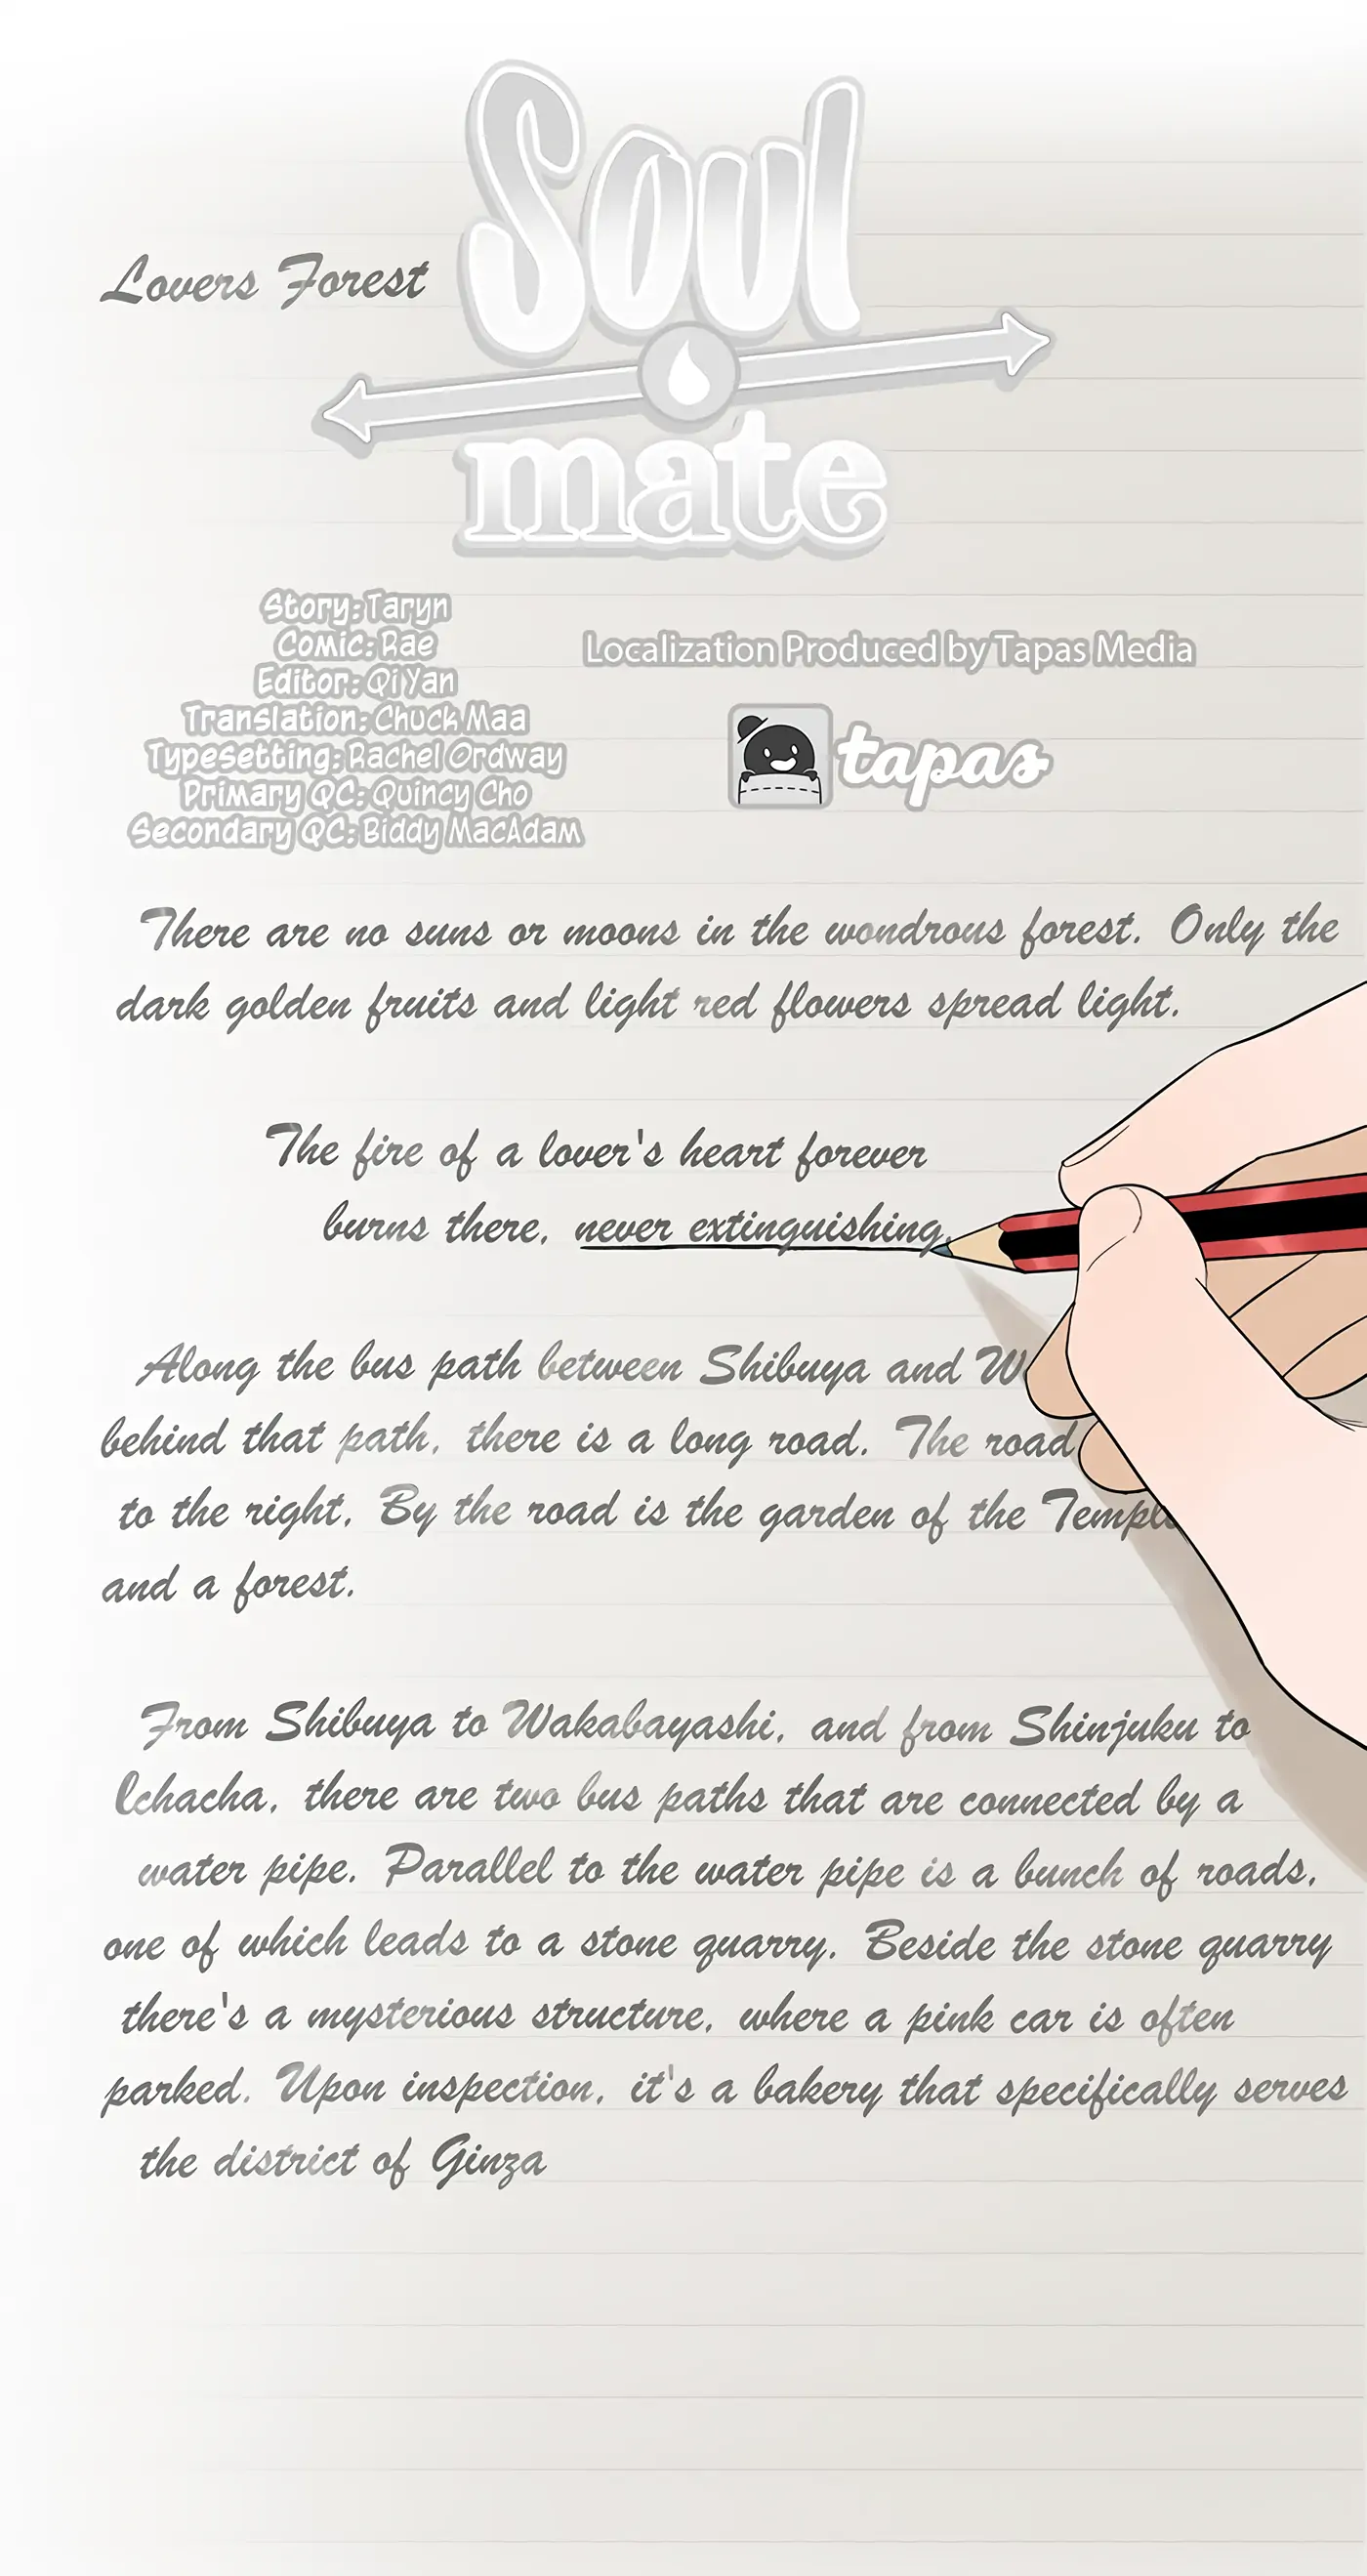 Soul
mate
Lovers Forest
Story: Taryn
Comic: Rae
Editor: Qi Yan
Translation: Chuck Maa
Typesetting: Rachel Ordway
Primary QC: Quincy Cho
Secondary QC: Biddy MacAdam
Localization Produced by Tapas Media
tapas
There are no suns or moons in the wondrous forest. Only the
dark golden fruits and light red flowers spread light.
The fire of a lover's heart forever
burns there, never extinguishing.
Along the bus path between Shibuya and
behind that path, there is a long road. The road
to the right, By the road is the garden of the Temple
and a forest.
From Shibuya to Wakabayashi, and from Shinjuku to
Ichacha, there are two bus paths that are connected by a
water pipe. Parallel to the water pipe is a bunch of roads,
one of which leads to a stone quarry. Beside the stone quarry
there's a mysterious structure, where a pink car is often
parked. Upon inspection, it's a bakery that specifically serves
the district of Ginza